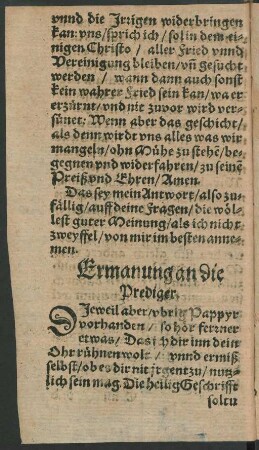 vnnd die Jrrigen widerbringen
kan: vns/ sprich ich/ sol in dem ei-
nigen Christo/ aller Fried vnnd
Vereinigung bleiben/ vñ gesucht
werden/ wann dann auch sonst
kein wahrer Fried sein kan/ wa er
erzürnt/ vnd nit zuvor wird ver-
sünet: Wenn aber das geschicht/
als denn wirdt vns alles was wir
mangeln/ ohn Mühe zu stehē/ be-
gegnen vnd widerfahren/ zu seinē
Preiß vnd Ehren/ Amen.
Das sey mein Antwort/ also zu-
fällig/ auff deine Fragen/ die wöl-
lest guter Meinung/ als ich nicht
zweyffel/ von mir im besten anne-
men.
Ermanung an die
Prediger.
DJeweil aber/ vbrig Pappyr
vorhanden/ so hör ferrner
etwas/ Das ich dir inn dein
Ohr rühnen wolt/ vnnd ermiß
selbst/ ob es dir nit jrgent zu/ nutz-
lich sein mag. Die heilig Geschrifft
solt u